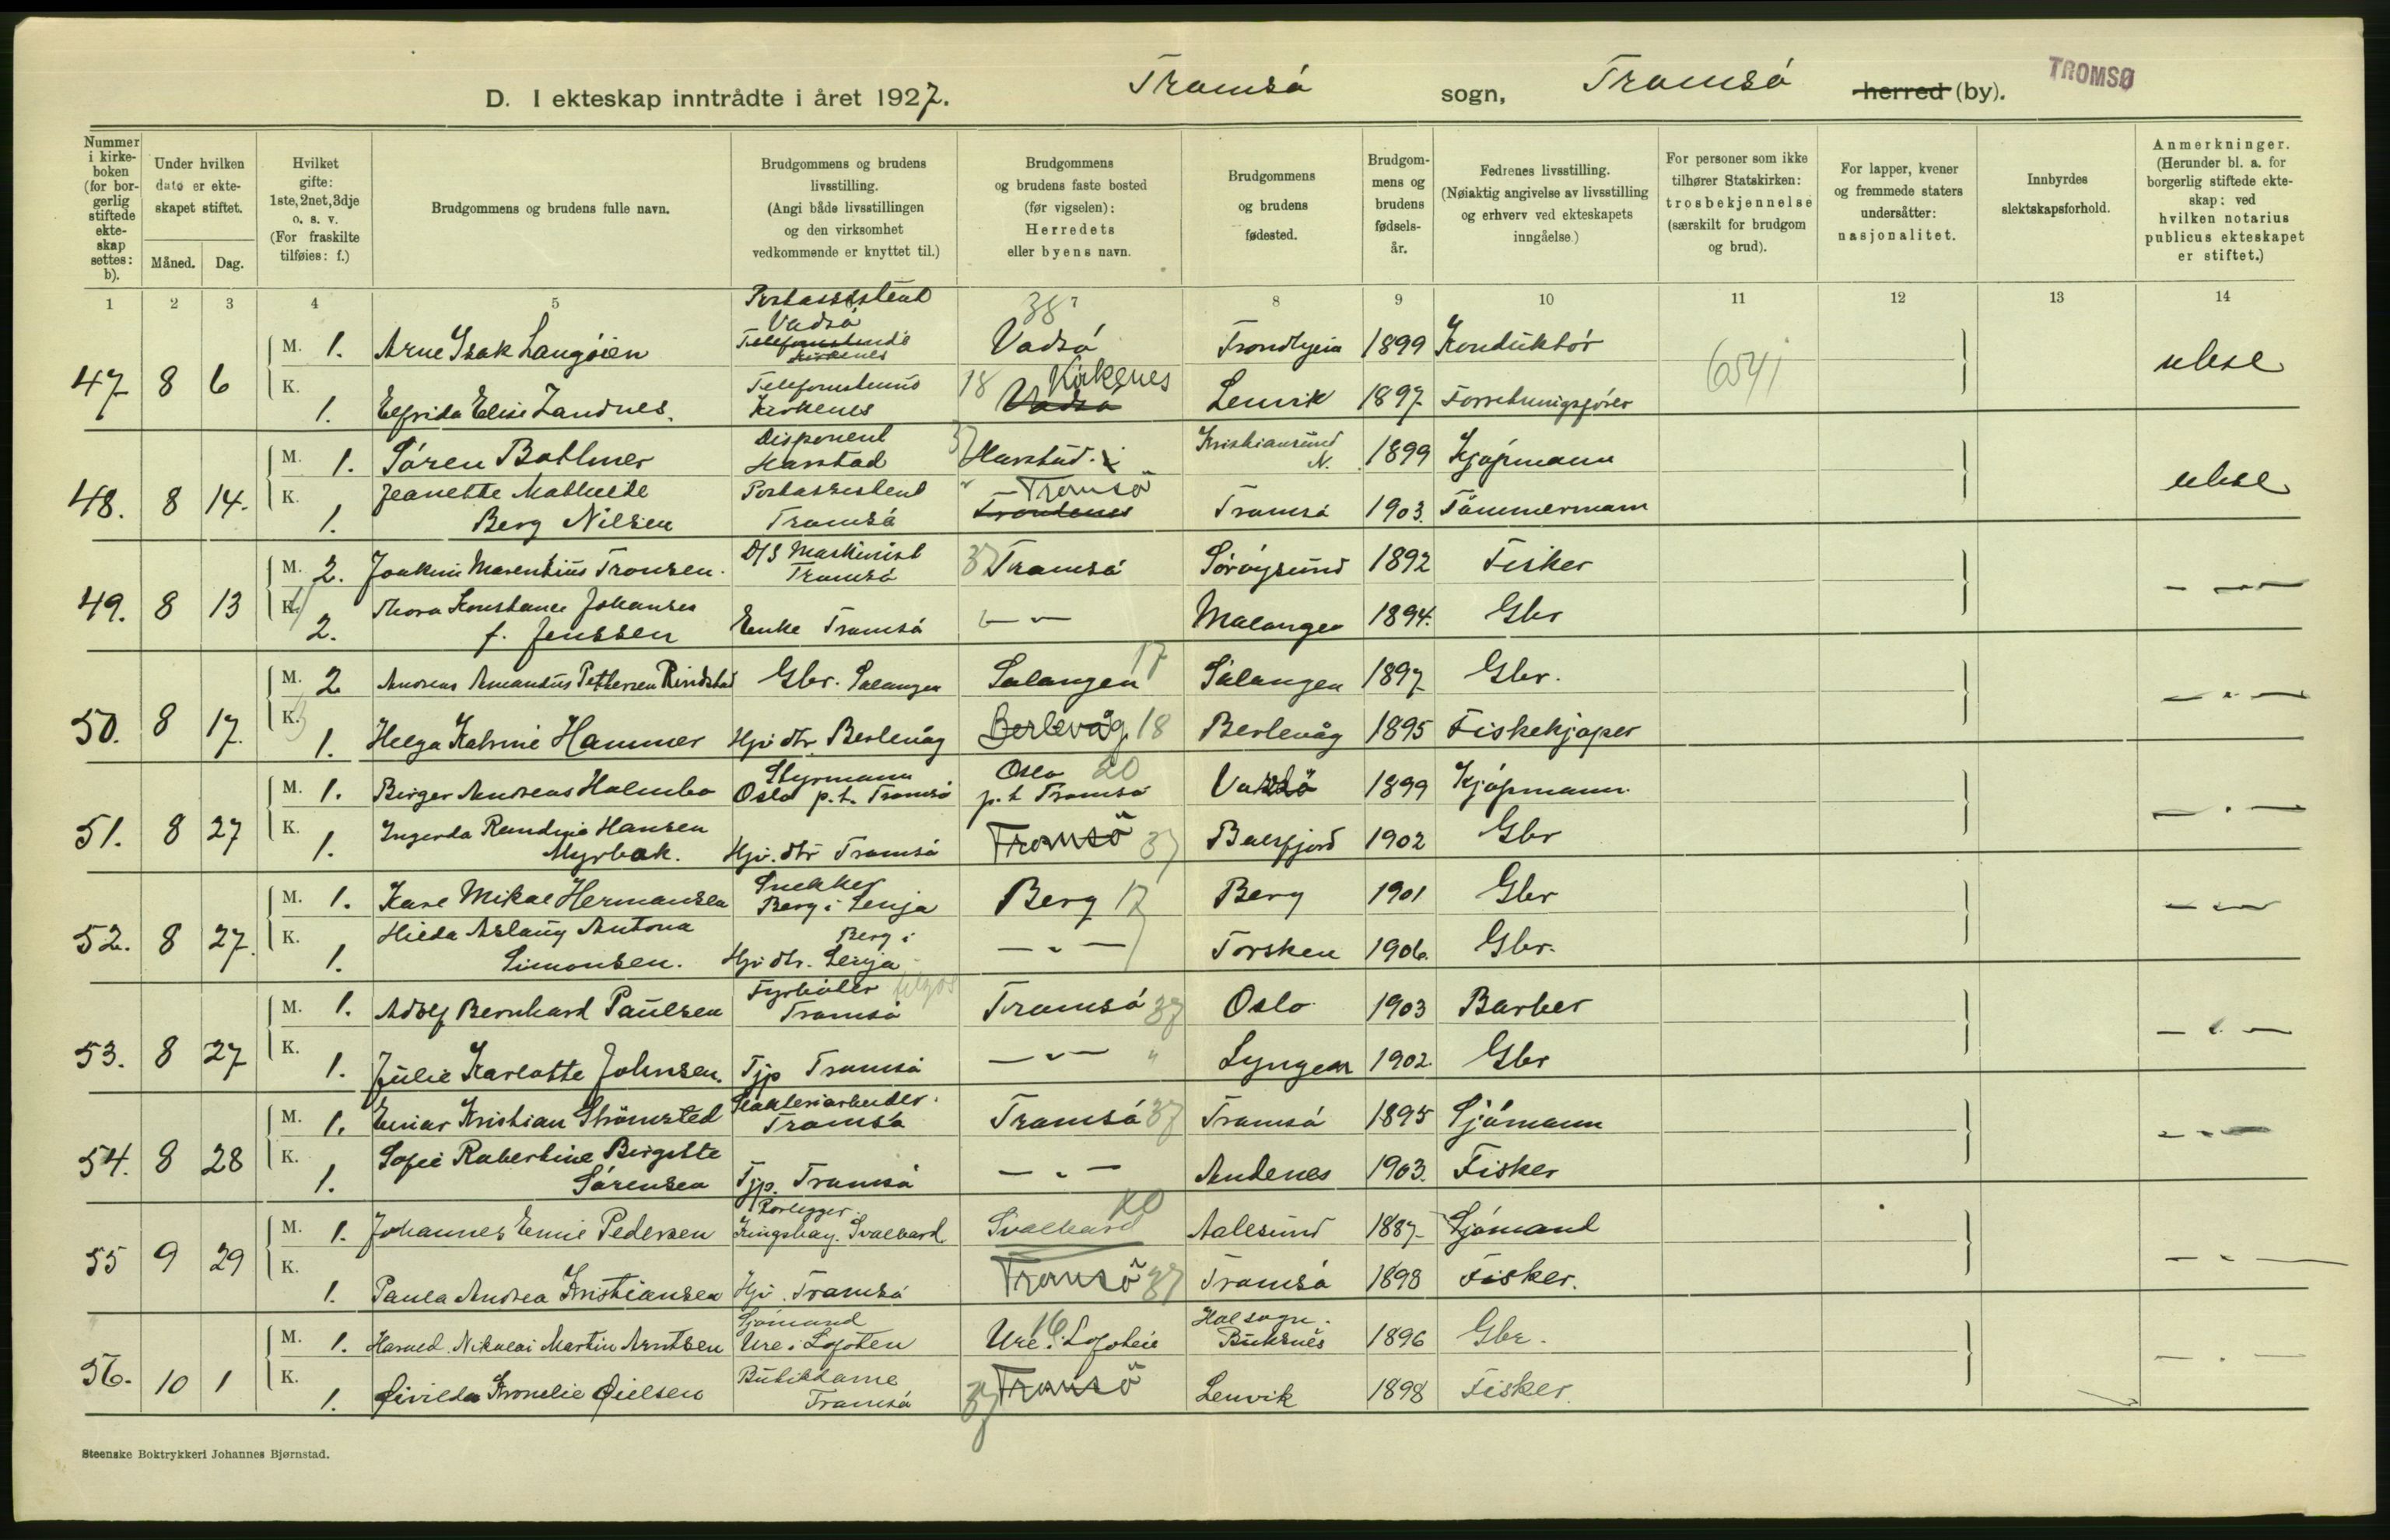 D. I ekteskap inntrådte i året 1927. Tromsó sogn, Tromsó herred (by). TROMSØ
Nummer i kirke-boken (for bor-gerlig stiftede ekte-skap settes: b).
Under hvilken dato er ekte-skapet stiftet.
Måned. Dag.
Hvilket gifte: 1ste, 2net, 3dje o. s. v. (For fraskilte tilføies: f.)
Brudgommens og brudens fulle navn.
Brudgommens og brudens livsstilling. (Angi både livsstillingen og den virksomhet vedkommende er knyttet til.)
Brudgommens og brudens faste bosted (før vigselen): Herredets eller byens navn.
Brudgommens og brudens fødested.
Brudgom-mens og brudens fødsels-år.
Fedrenes livsstilling. (Nøiaktig angivelse av livsstilling og erhverv ved ekteskapets inngåelse.)
For personer som ikke tilhører Statskirken: trosbekjennelse (særskilt for brudgom og brud).
For lapper, kvener og fremmede staters undersåtter: nasjonalitet.
Innbyrdes slektskapsforhold.
Anmerkninger. (Herunder bl. a. for borgerlig stiftede ekte-skap: ved hvilken notarius publicus ekteskapet er stiftet.)
1 2 3 4 5 7 8 9 10 11 12 13 14
Postassistent 38
Vadsó
47 8 6 M. 1. Arne Isak Langóien Vadsó Trondhjem 1899 Konduktór
Kirkenes
K. 1. Elfrida Elise Landnes. Kirkenes 18 Vadsó Lenvik 1897 Forretningsfórer
Disponent
48. 8 14. M. 1. Sóren Bothner Harstad Harstad. Kristiansund N. 1899 Kjópmann
K. Jeanette Mathilde Postassistent Tromsö
1. Berg Nilsen Tromsó Trondenes Tromsó 1903. Tómmermann
D/S Maskinist
49. 8 13 M. 2. Joakim Marentius Tronsen. Tromsó 37 Tromsó Sóróysund 1892 Fisker
K. Thora Konstance Johansen
2. f. Jenssen Enke Tromsó — " — Malangen 1894. Gbr
50. 8 17. M. 2 Andreas Amandus Pettersen Rindstad Gbr. Salangen Salangen 17 Salangen 1897 Gbr. — " —
K. 1. Helga Katrine Hammer Hjv dtr. Berlevåg Berlevåg 18 Berlevåg 1895 Fiskekjóper
Styrmann Oslo 20
51. 8 27 M. 1. Birger Andreas Holmbo Oslo p.t. Tromsó p.t Tromsó Vardö 1899 Kjópmann. — " —
K. Ingerda Randina Hansen
1. Myrbak. Hjv. dtr Tromsó Tromsö 37 Balsfjord 1902 Gbr
Snekker
52. 8 27. M. 1. Kare Mikal Hermansen Berg i Senja Berg 17 Berg 1901 Gbr — " —
K. Hilda Aslaug Antona Berg i
1. Simonsen. Hjv dtr. Senja — " — Torsken 1906. Gbr.
Fyrbóter
53. 8 27 M. 1. Adolf Bernhard Paulsen Tromsó Tromsó 37 Oslo 1903 Barber — " —
K. 1. Julie Karlotte Johnsen. Tjp Tromsó — " — " Lyngen 1902. Gbr
54. 8 28 M. 1. Einar Kristian Strömsted Tromsó Tromsó 37 Tromsó 1895 Sjómann — " —
K. Sofie Robertine Birgitte
1. Sórensen Tjp. Tromsó — " — Andenes 1903. Fisker
Rórlegger. 20
55 9 29 M. 1. Johannes Emil Pedersen Kingsbay. Svalbard Svalbard Aalesund 1887 Sjómand — " —
K. 1. Paula Andrea Kristiansen Hjv. Tromsó Tromsö 37 Tromsó 1898 Fisker.
Sjómand 16 Hol sogn.
56. 10 1 M. 1. Harald Nikolai Martin Arntsen Ure i Lofoten Ure i Lofoten Buksnes 1896 Gbr. — " —
K. Butikdame
1. Tromsó 37 Tromsö Lenvik 1898 Fisker.
Steenske Boktrykkeri Johannes Bjørnstad.